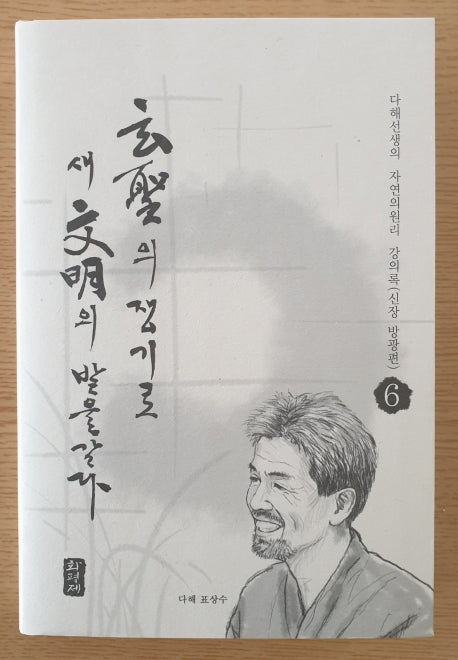 다해선생의 자연의원리 강의록(신장 방광편)
6
玄聖의 쟁기로
새 文明의 밭을갈다
화평제
다해 표상수